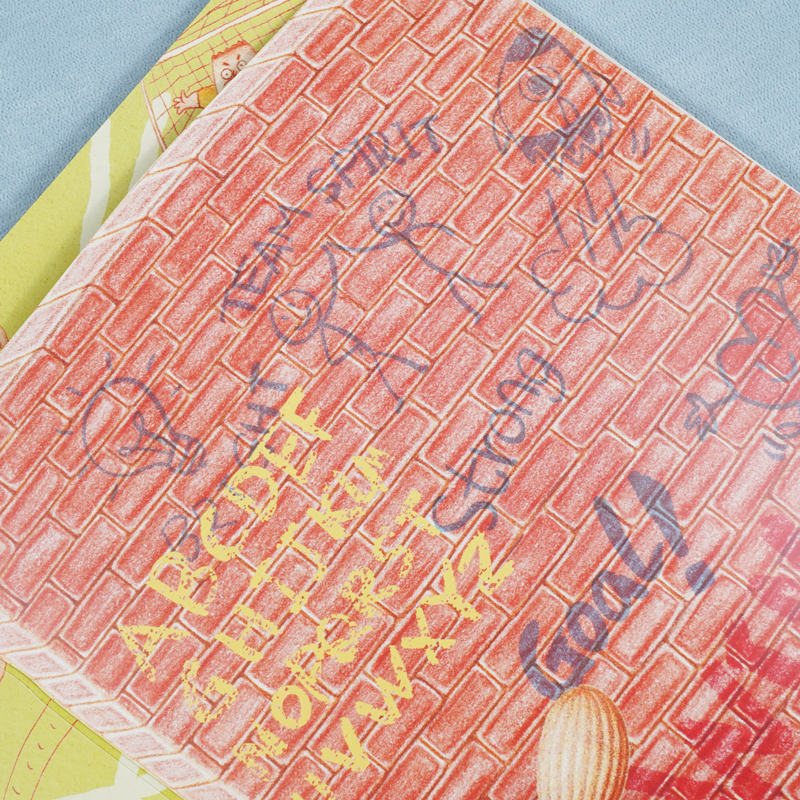 TEAM SPIRIT
BRIGHT
Strong
Goal!
ABCDEF
GHIJKLM
NOPQRST
UVWXYZ